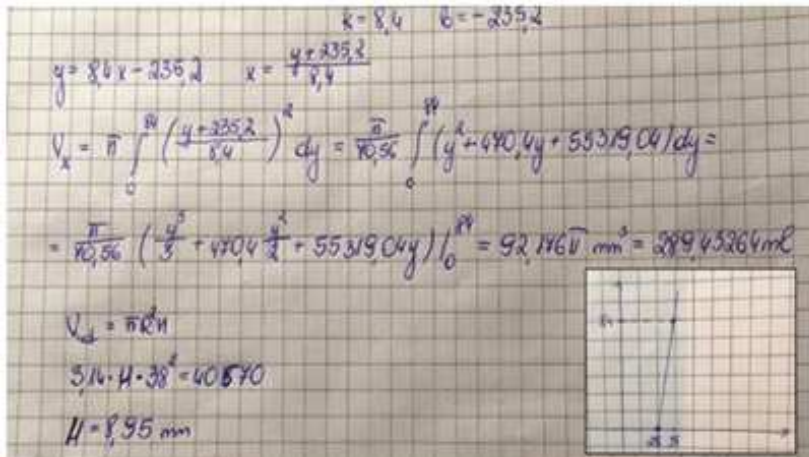 k=8,4 b=-235,2
y=8,4x-235,2 x=\frac{y+235,2}{8,4}
V_x = π ∫_0^{84} (\frac{y+235,2}{8,4})^2 dy = \frac{π}{70,56} ∫_0^{84} (y^2+470,4y+55319,04)dy=
= \frac{π}{70,56} (\frac{y^3}{3} + 470,4\frac{y^2}{2} + 55319,04y)|_0^{84} = 92,176π mm^3 = 289,43264 ml
= πR^2H
3,14·H·38^2=40670
H=8,95 mm